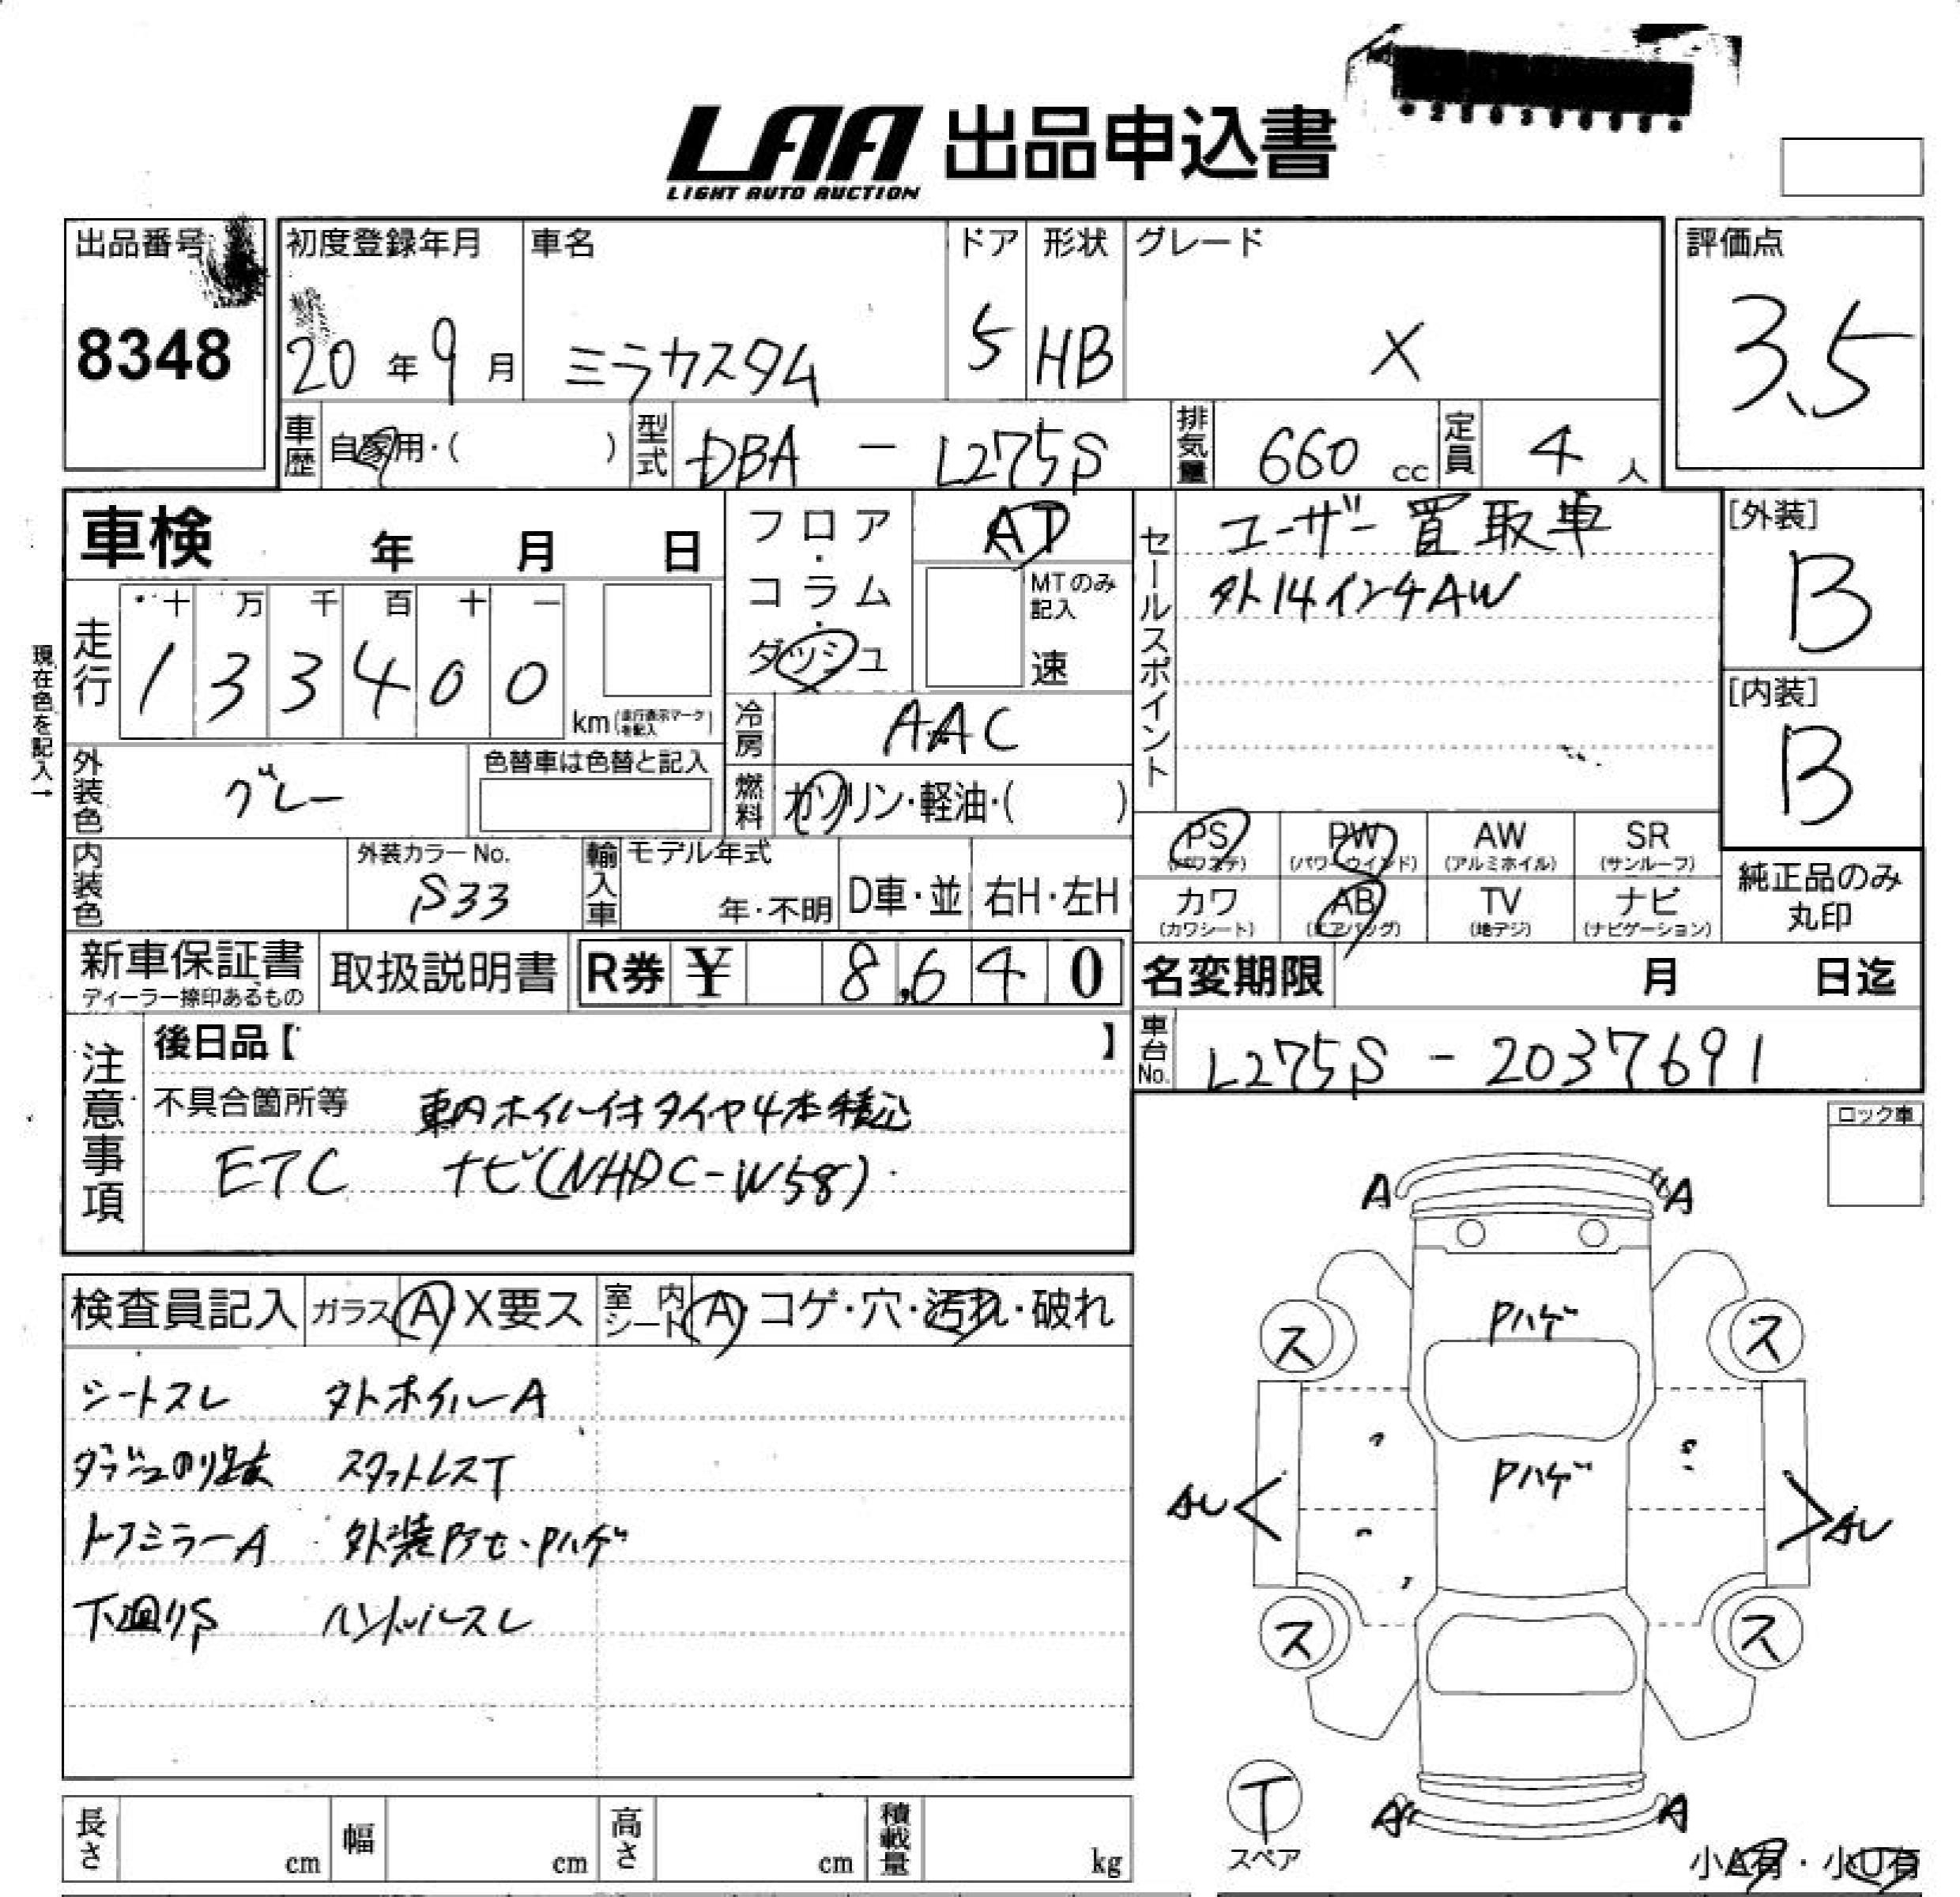 LAA 出品申込書
LIGHT AUTO AUCTION
出品番号
8348
初度登録年月
20年9月
車名
ミラカスタム
ドア
5
形状
HB
グレード
X
評価点
3.5
車歴
自家用・( )
型式
DBA － L275S
排気量
660 cc
定員
4 人
車検 年 月 日
走行
十 万 千 百 十 一
1 3 3 4 0 0
km(走行表示マークを記入)
現在色を記入→
外装色
グレー
色替車は色替と記入
内装色
外装カラーNo.
S33
輸入車
モデル年式
年・不明
D車・並
右H・左H
フロア・コラム・ダッシュ
AT
MTのみ記入
速
冷房
AAC
燃料
ガソリン・軽油・( )
セールスポイント
ユーザー買取車
外14インチAW
[外装]
B
[内装]
B
PS
(パワステ)
PW
(パワーウインド)
AW
(アルミホイル)
SR
(サンルーフ)
カワ
(カワシート)
AB
(エアバッグ)
TV
(地デジ)
ナビ
(ナビゲーション)
純正品のみ
丸印
新車保証書
ディーラー捺印あるもの
取扱説明書
R券 ¥ 8,640
名変期限 月 日迄
車台No.
L275S - 2037691
注意事項
後日品【 】
不具合箇所等 車内ホイル付タイヤ4本積込
ETC ナビ(NHDC-W58)
ロック車
検査員記入
ガラス A・X要ス
室内シート A・コゲ・穴・汚れ・破れ
シートスレ 外ホイルーA
ダッシュのり跡大 スタットレスT
ドアミラーA 外装アセ・Pハゲ
下廻りS ハンドルスレ
A A
Pハゲ
ス ス
Pハゲ
AU AU
ス ス
T
スペア
A A
小A有・小U有
長さ cm
幅 cm
高さ cm
積載量 kg